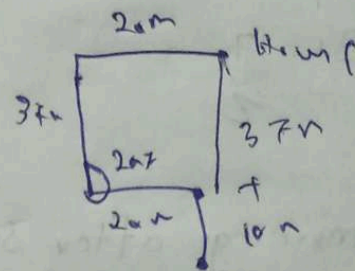 20m
37m
37m
207
20m
+
10m